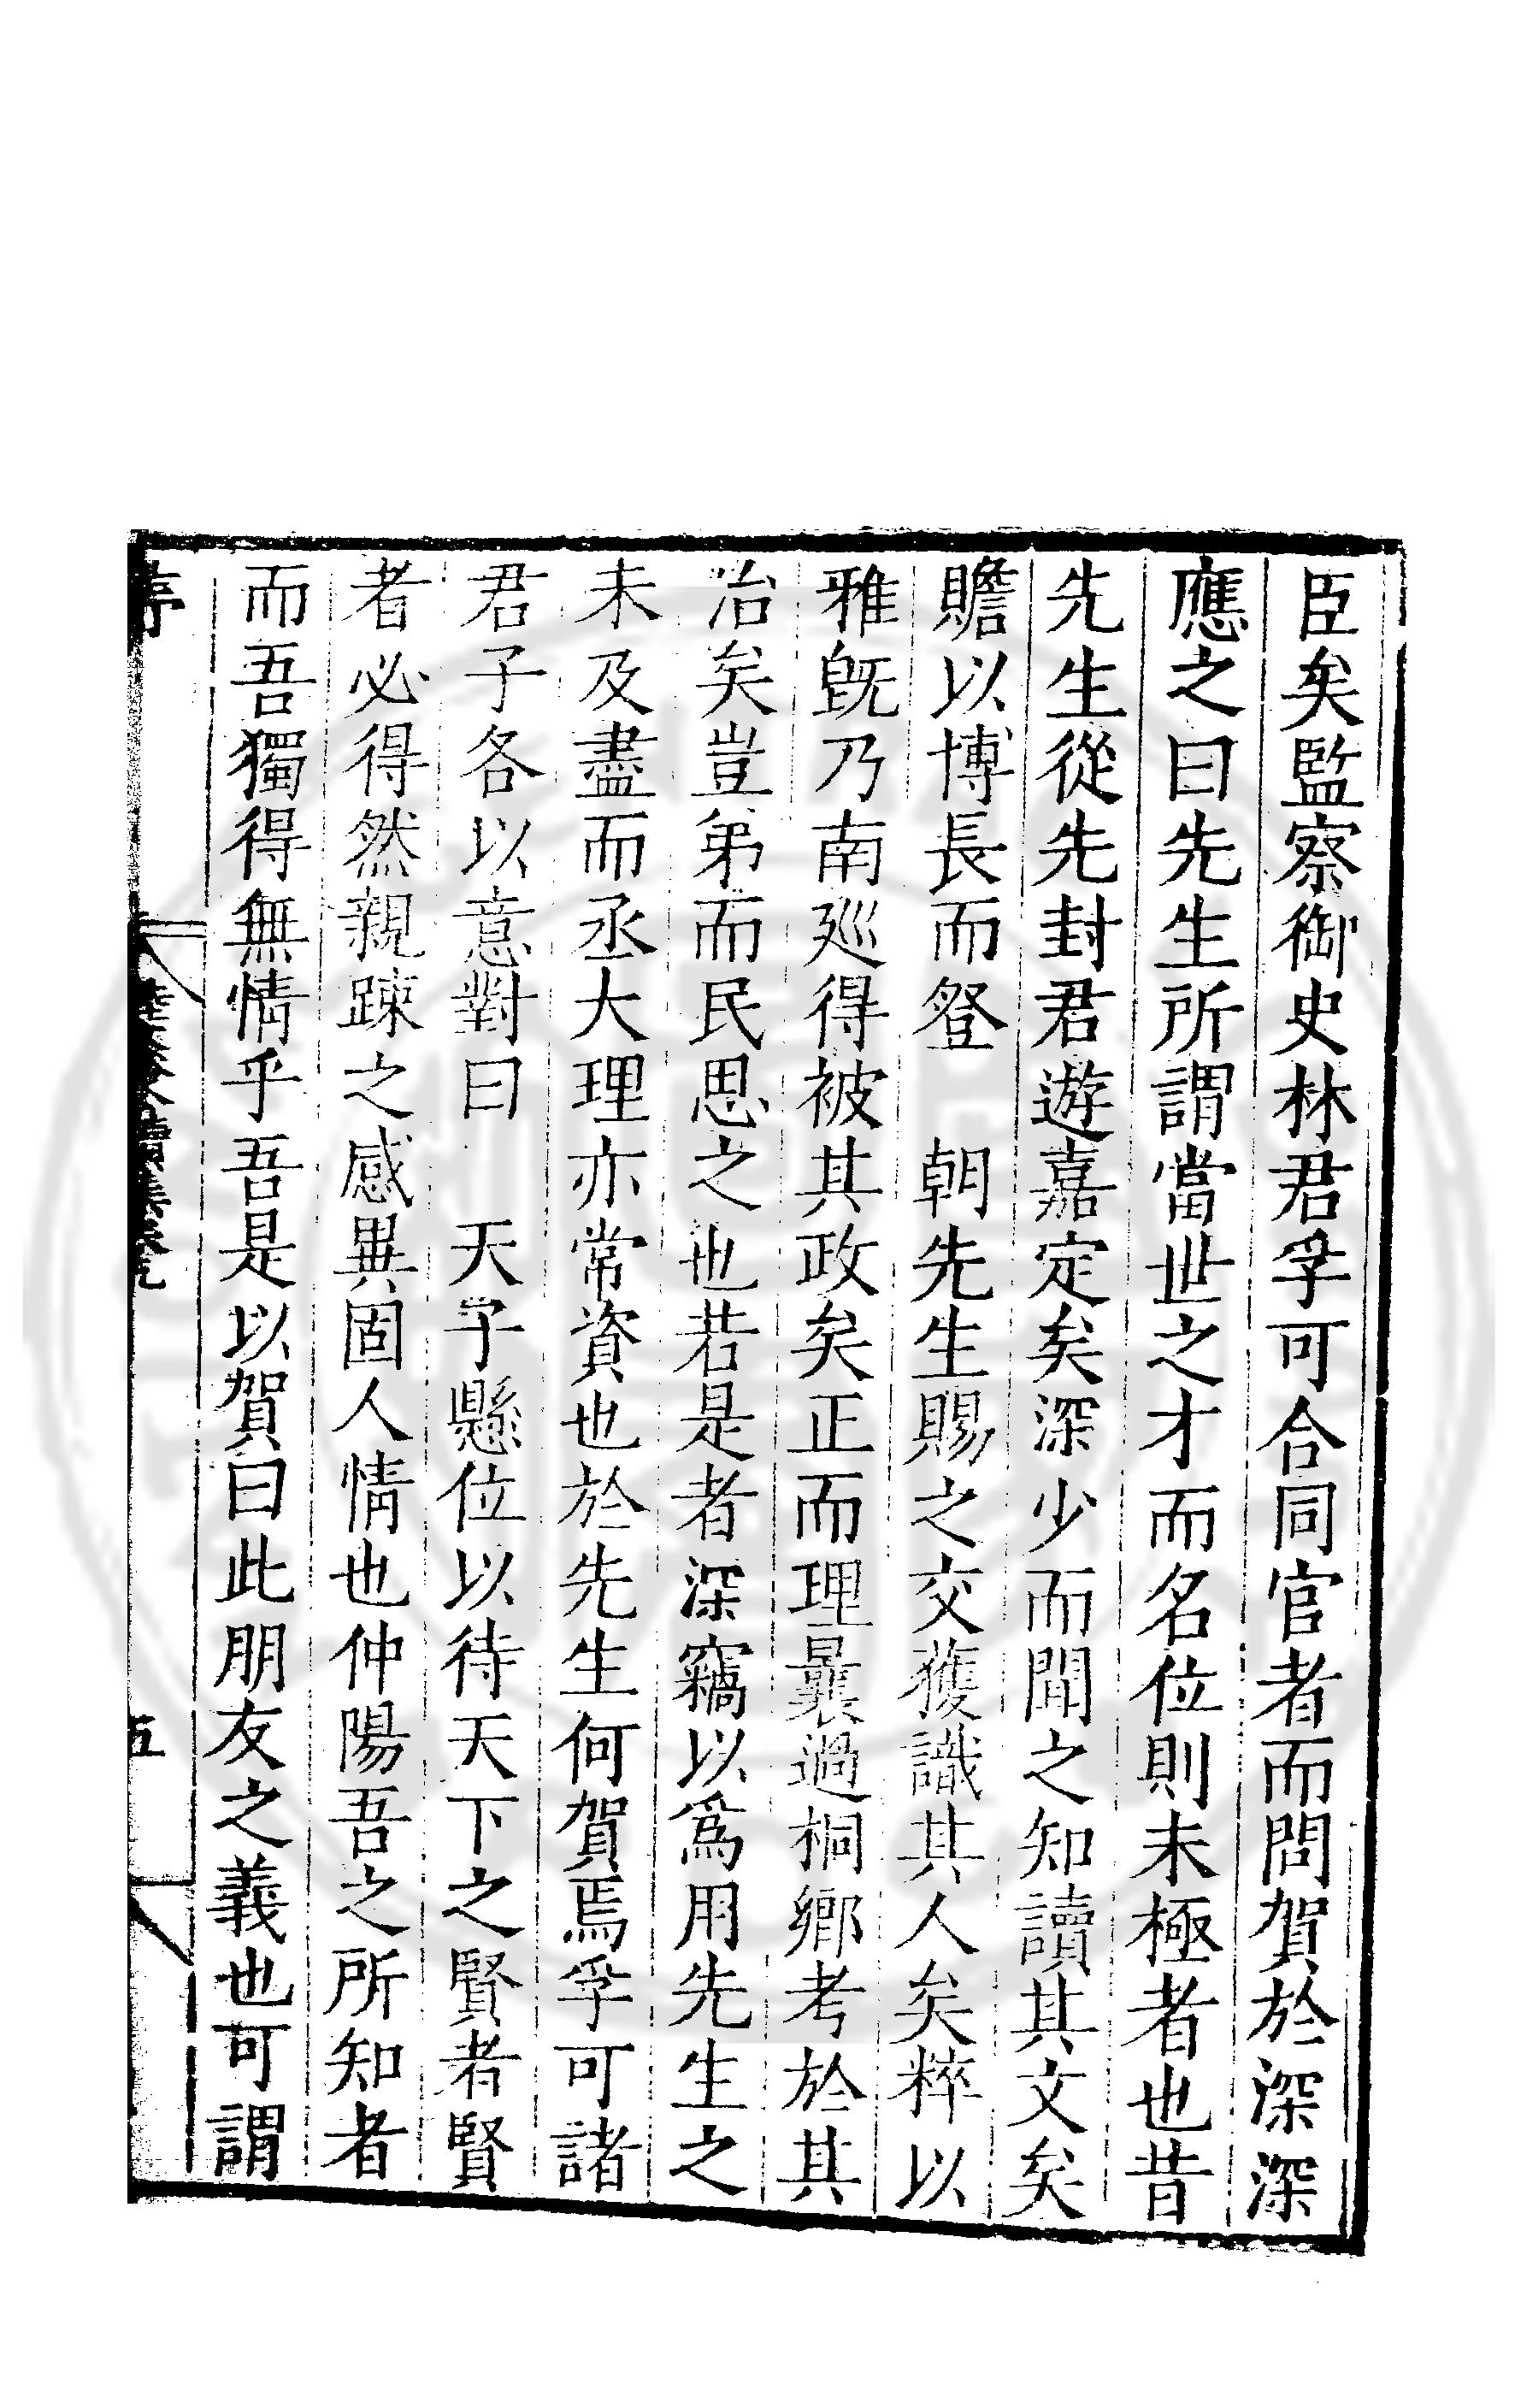 臣矣監察御史林君孚可合同官者而問賀於深深
應之曰先生所謂當世之才而名位則未極者也昔
先生從先封君遊嘉定矣深少而聞之知讀其文矣
贍以博長而登　朝先生賜之交獲識其人矣粹以
雅旣乃南廵得被其政矣正而理曩過桐鄉考於其
治矣豈弟而民思之也若是者深竊以爲用先生之
未及盡而丞大理亦常資也於先生何賀焉孚可諸
君子各以意對曰　天子懸位以待天下之賢者賢
者必得然親踈之感異固人情也仲陽吾之所知者
而吾獨得無情乎吾是以賀曰此朋友之義也可謂
序
五